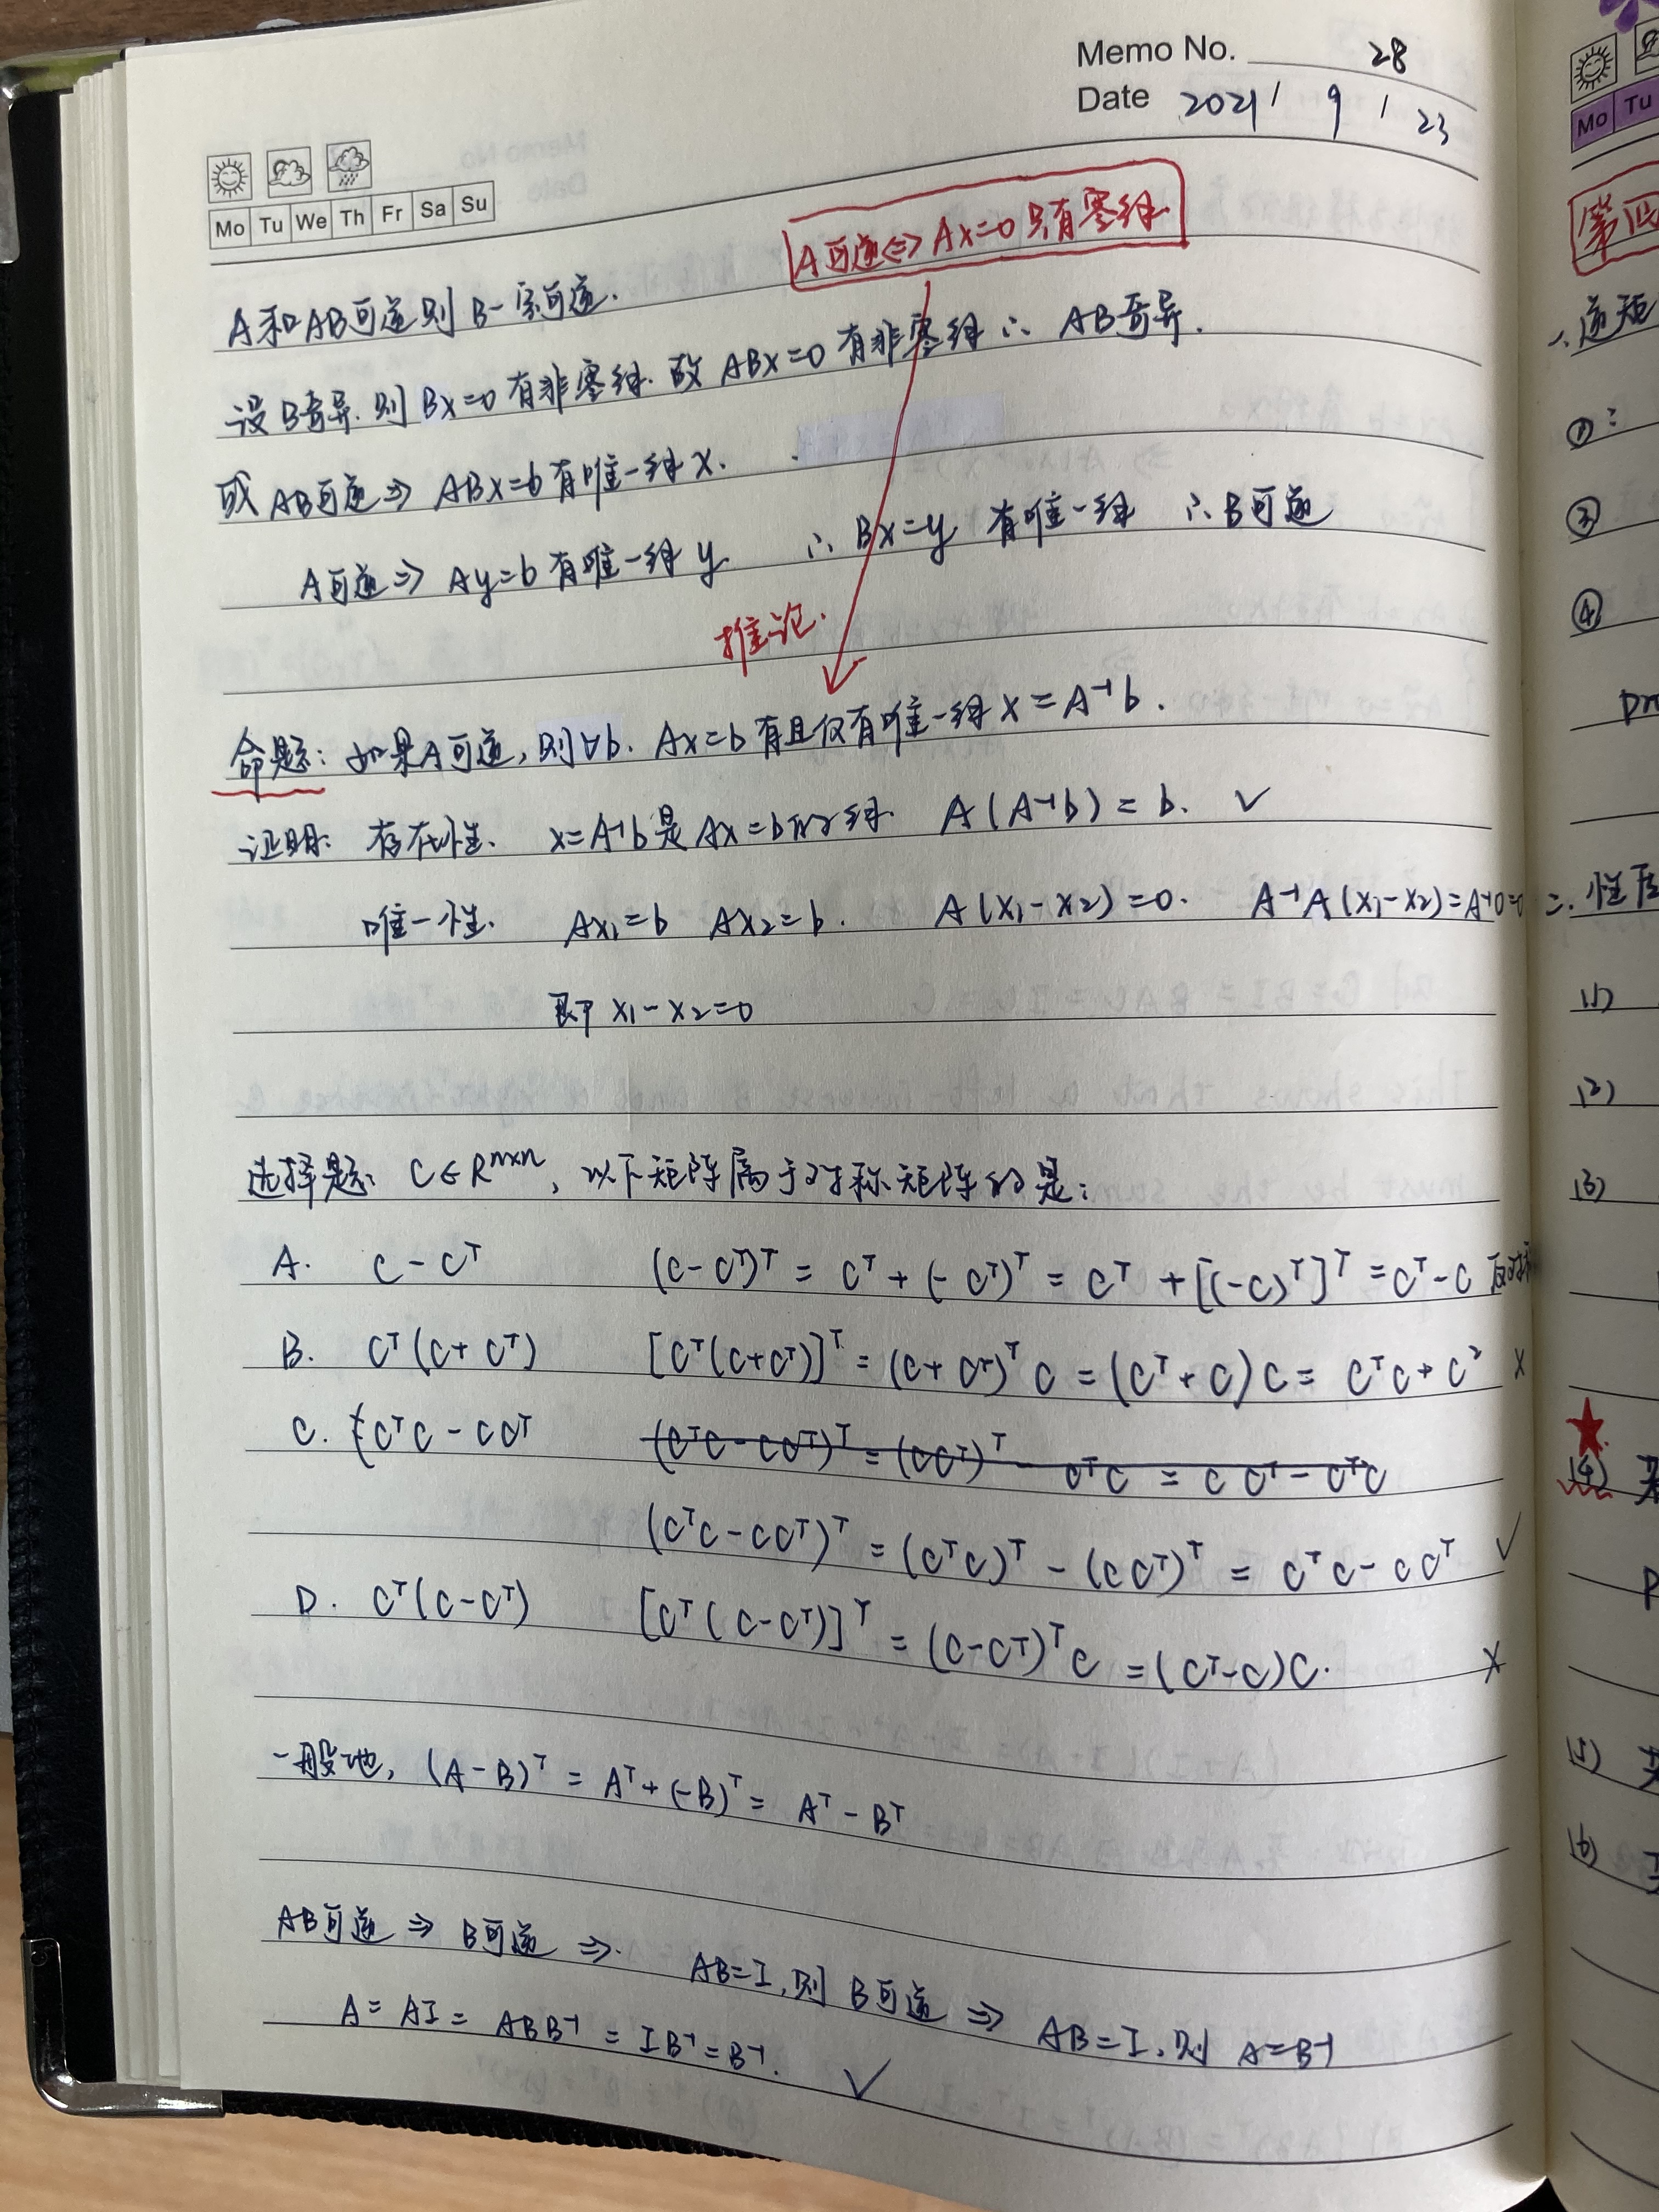 Memo No. 28
Date 2021 / 9 / 23
Mo Tu We Th Fr Sa Su
A可逆⇔Ax=0只有零解
A和AB可逆则B一定可逆.
设B奇异.则Bx=0有非零解.故ABx=0有非零解∴AB奇异.
或AB可逆⇒ABx=b有唯一解x.
A可逆⇒Ay=b有唯一解y. ∴Bx=y 有唯一解 ∴B可逆
推论.
命题: 如果A可逆,则∀b. Ax=b有且仅有唯一解x=A⁻¹b.
证明: 存在性. x=A⁻¹b是Ax=b的解. A(A⁻¹b)=b. ✓
唯一性. Ax₁=b Ax₂=b. A(x₁-x₂)=0. A⁻¹A(x₁-x₂)=A⁻¹0=0
即 x₁-x₂=0
选择题: C∈Rⁿˣⁿ, 以下矩阵属于对称矩阵的是:
A. C-Cᵀ (C-Cᵀ)ᵀ = Cᵀ+(-Cᵀ)ᵀ = Cᵀ+[(-C)ᵀ]ᵀ = Cᵀ-C 反对称
B. Cᵀ(C+Cᵀ) [Cᵀ(C+Cᵀ)]ᵀ = (C+Cᵀ)ᵀC = (Cᵀ+C)C = CᵀC+C² ×
C. CᵀC-CCᵀ (CᵀC-CCᵀ)ᵀ = (CCᵀ)ᵀ - CᵀC = CCᵀ-CᵀC
(CᵀC-CCᵀ)ᵀ = (CᵀC)ᵀ-(CCᵀ)ᵀ = CᵀC-CCᵀ ✓
D. Cᵀ(C-Cᵀ) [Cᵀ(C-Cᵀ)]ᵀ = (C-Cᵀ)ᵀC = (Cᵀ-C)C. ×
一般地, (A-B)ᵀ = Aᵀ+(-B)ᵀ = Aᵀ-Bᵀ
AB可逆 ⇒ B可逆 ⇒. AB=I,则 B可逆 ⇒ AB=I,则 A=B⁻¹
A = AI = ABB⁻¹ = IB⁻¹ = B⁻¹. ✓
Mo Tu
一.逆矩
①:
③
④
二.性质
(1)
(2)
(3)
★
(4)
(5)
(6)